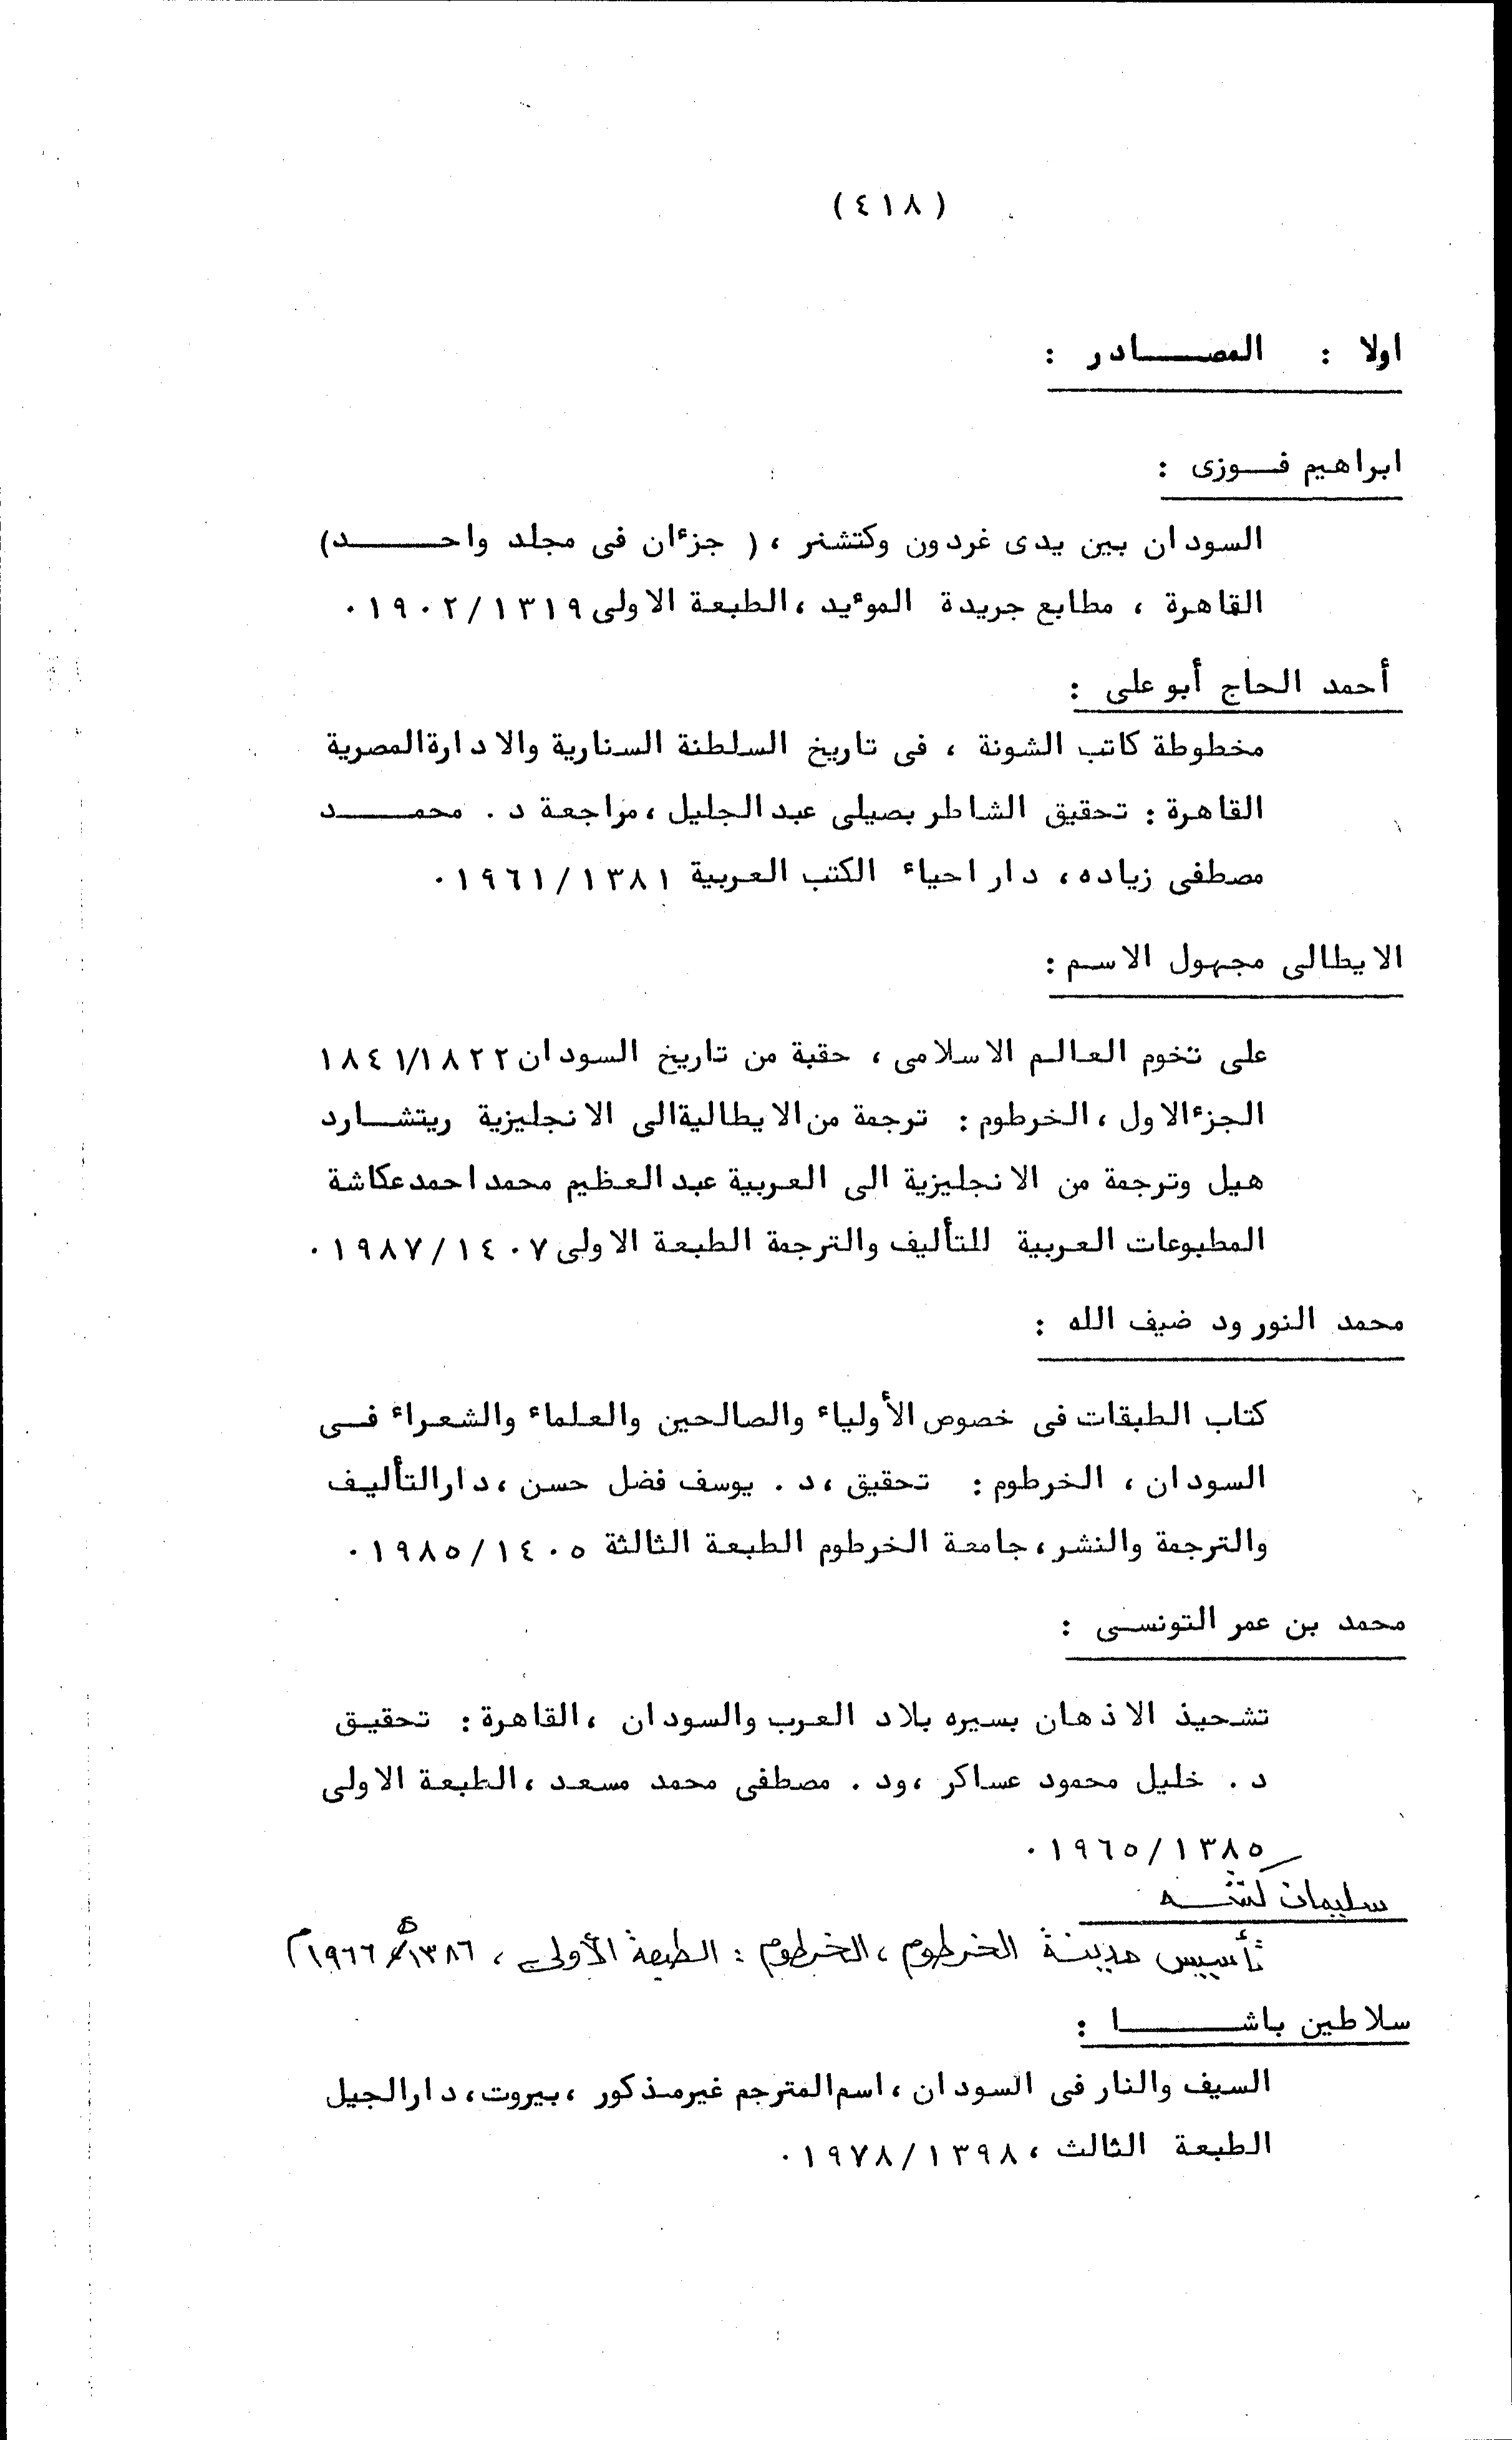 (٤١٨)
اولا : المصـــــادر :
ابراهيم فــوزى :
السودان بين يدى غردون وكتشنر ، ( جزءان فى مجلد واحــــــد)
القاهرة ، مطابع جريدة الموءيد ، الطبعة الاولى ١٣١٩/١٩٠٢ ٠
أحمد الحاج أبو على :
مخطوطة كاتب الشونة ، فى تاريخ السلطنة السنارية والادارة المصرية
القاهرة : تحقيق الشاطر بصيلى عبد الجليل ، مراجعة د . محمـــــد
مصطفى زياده ، دار احياء الكتب العربية ١٣٨١/١٩٦١ ٠
الايطالى مجهول الاسم :
على تخوم العالم الاسلامى ، حقبة من تاريخ السودان ١٨٢٢/١٨٤١
الجزء الاول ، الخرطوم : ترجمة من الايطالية الى الانجليزية ريتشــارد
هيل وترجمة من الانجليزية الى العربية عبد العظيم محمد احمد عكاشة
المطبوعات العربية للتأليف والترجمة الطبعة الاولى ١٤٠٧/١٩٨٧ ٠
محمد النور ود ضيف الله :
كتاب الطبقات فى خصوص الأولياء والصالحين والعلماء والشعراء فــى
السودان ، الخرطوم : تحقيق ، د . يوسف فضل حسن ، دار التأليف
والترجمة والنشر ، جامعة الخرطوم الطبعة الثالثة ١٤٠٥/١٩٨٥ ٠
محمد بن عمر التونسـى :
تشحيذ الاذهان بسيره بلاد العرب والسودان ، القاهرة : تحقيـق
د . خليل محمود عساكر ، ود . مصطفى محمد مسعد ، الطبعة الاولى
١٣٨٥/١٩٦٥ ٠
سليمان كشـــه
تأسيس مدينة الخرطوم ، الخرطوم : الطبعة الأولى ، ١٣٨٦هـ/١٩٦٦م
سلاطين باشـــــــا :
السيف والنار فى السودان ، اسم المترجم غير مذكور ، بيروت ، دار الجيل
الطبعة الثالث ، ١٣٩٨/١٩٧٨ ٠